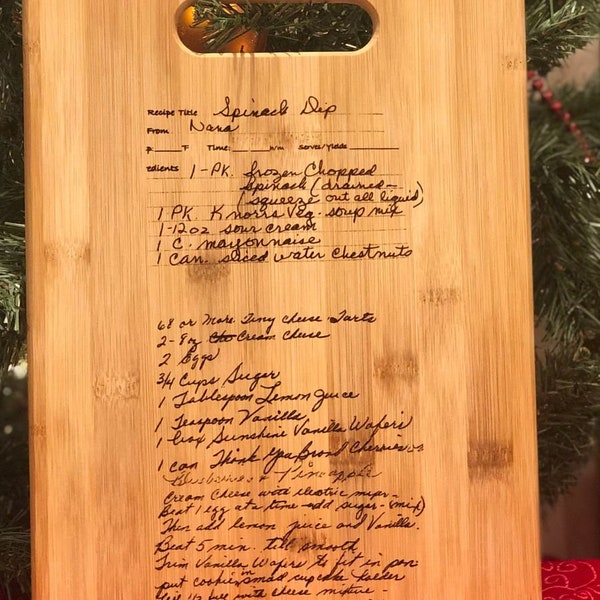 Recipe Title Spinach Dip
From Nana
F Time: serves/yields
edients 1-PK. frozen Chopped
Spinach (drained-
(squeeze out all liquid)
1 PK. Knorrs Veg. soup mix
1-12oz sour cream
1 C. mayonnaise
1 can. sliced water chestnuts
68 or More Tiny Cheese Tarts
2-8oz Cream Cheese
2 Eggs
3/4 Cups Sugar
1 Tablespoon Lemon Juice
1 Teaspoon Vanilla
1 box Sunshine Vanilla Wafers
1 can Thank You Brand Cherries or
Blueberries or Pineapple
Cream Cheese with electric mixer-
Beat 1 egg at a time add sugar-(mix)
Then add lemon juice and Vanilla.
Beat 5 min. till smooth
Trim Vanilla Wafers to fit in pan
put cookie in small cupcake holder
fill 1/2 full with cheese mixture-